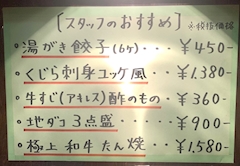 [スタッフのおすすめ] ※税抜価格
・湯がき餃子(6ヶ)・・・¥450-
・くじら刺身ユッケ風・・・¥1.380-
・牛すじ(アキレス)酢のもの・¥360-
・地ダコ3点盛・・・・・¥900-
・極上和牛たん焼・・・¥1.580-